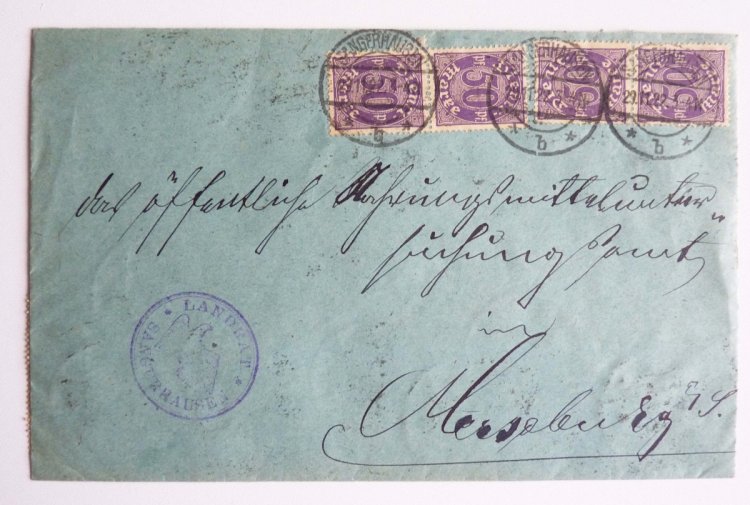 SANGERHAUSEN
50 Pf
50 Pf
50
50
29.11.22
b * * b * * b *
das öffentliche Nahrungsmittelunter"
suchungsamt
in
Merseburg a/S.
* LANDRAT *
SANGERHAUSEN